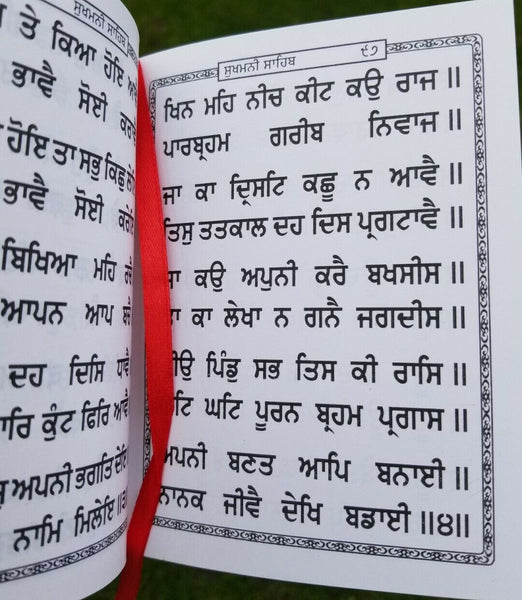 ਸੁਖਮਨੀ ਸਾਹਿਬ
ਤੇ ਕਿਆ ਹੋਇ
ਭਾਵੈ ਸੋਈ
ਹੋਇ ਤਾ ਸਭੁ ਕਿਛੁ
ਭਾਵੈ ਸੋਈ
ਬਿਖਿਆ ਮਹਿ
ਆਪਨ ਆਪ
ਦਹ ਦਿਸਿ
ਕੁੰਟ ਫਿਰਿ
ਅਪਨੀ ਭਗਤਿ ਦੇਇ
ਨਾਮਿ ਮਿਲੇਇ ॥੩॥
ਸੁਖਮਨੀ ਸਾਹਿਬ ੯੭
ਖਿਨ ਮਹਿ ਨੀਚ ਕੀਟ ਕਉ ਰਾਜ ॥
ਪਾਰਬ੍ਰਹਮ ਗਰੀਬ ਨਿਵਾਜ ॥
ਜਾ ਕਾ ਦ੍ਰਿਸਟਿ ਕਛੂ ਨ ਆਵੈ ॥
ਤਿਸੁ ਤਤਕਾਲ ਦਹ ਦਿਸ ਪ੍ਰਗਟਾਵੈ ॥
ਜਾ ਕਉ ਅਪੁਨੀ ਕਰੈ ਬਖਸੀਸ ॥
ਤਾ ਕਾ ਲੇਖਾ ਨ ਗਨੈ ਜਗਦੀਸ ॥
ਜੀਉ ਪਿੰਡੁ ਸਭ ਤਿਸ ਕੀ ਰਾਸਿ ॥
ਘਟਿ ਘਟਿ ਪੂਰਨ ਬ੍ਰਹਮ ਪ੍ਰਗਾਸ ॥
ਅਪਨੀ ਬਣਤ ਆਪਿ ਬਨਾਈ ॥
ਨਾਨਕ ਜੀਵੈ ਦੇਖਿ ਬਡਾਈ ॥੪॥